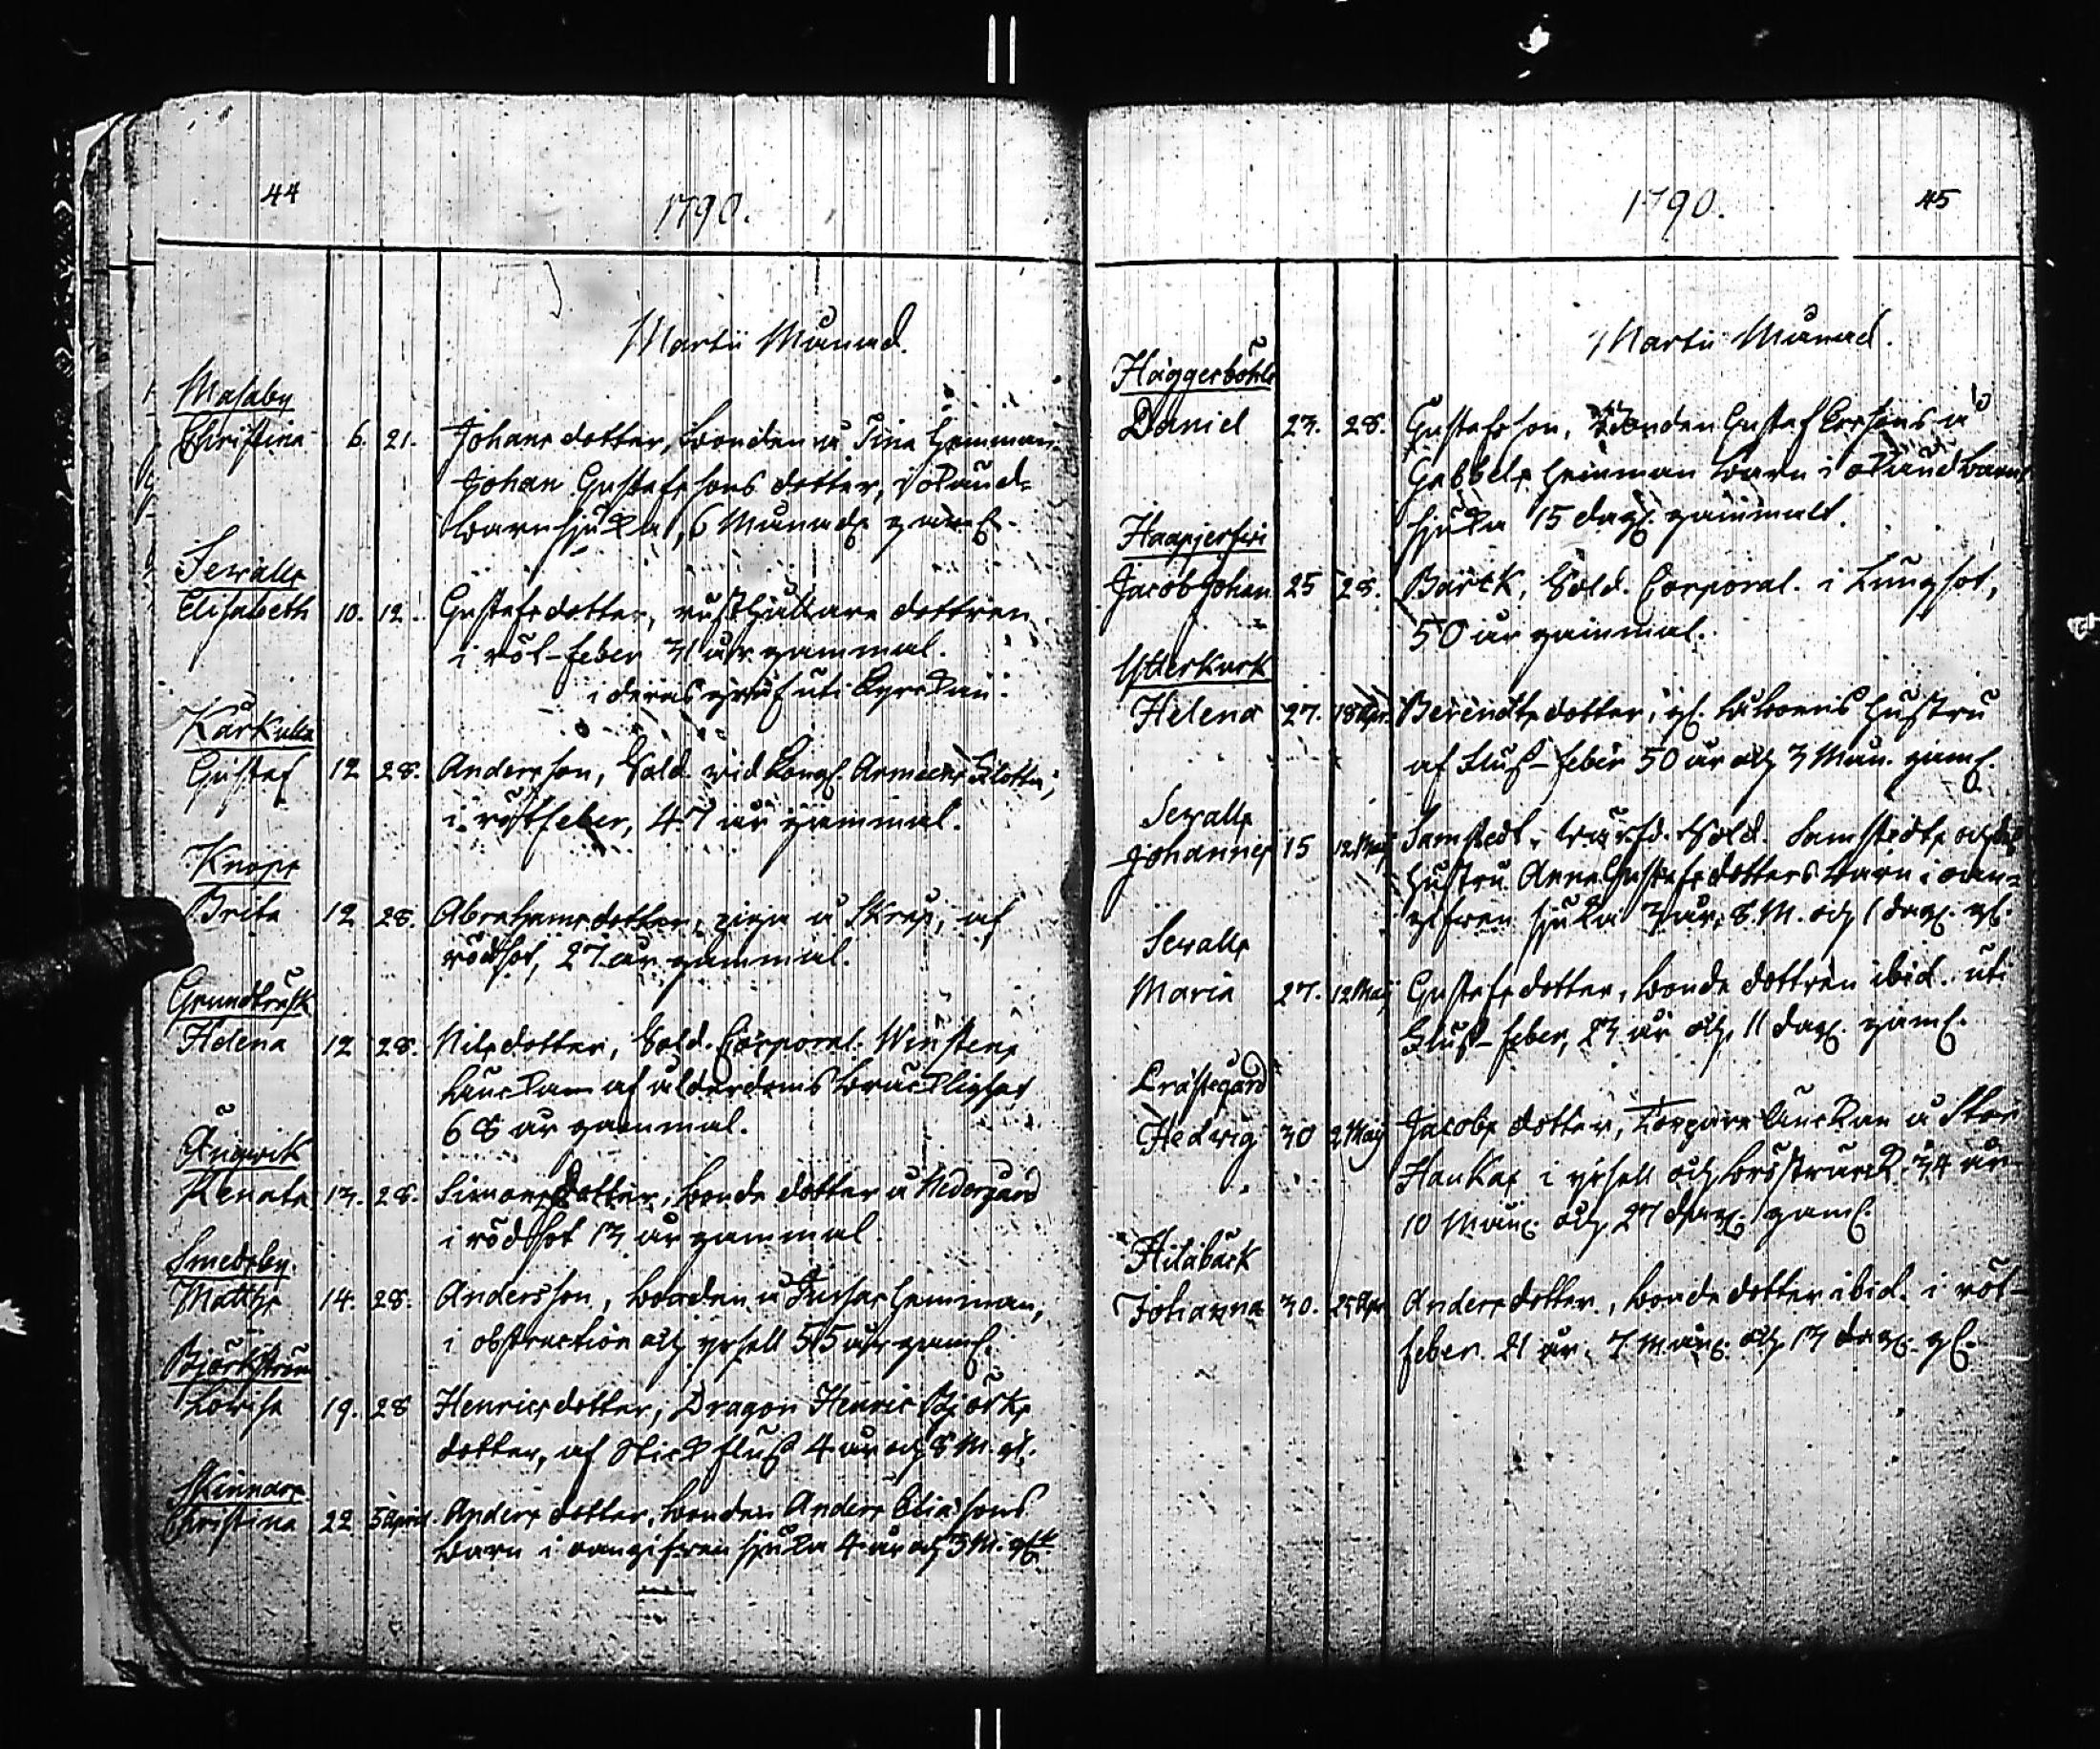 44
1790.
Martii Månad.
Masaby
Christina 6. 21. Johans dotter, bonden å Tina Hemman
Johan Gustafssons dotter, i okänd
barnsjuka, 6 Månads gaml.
Sevalls
Elisabeth 10. 12. Gustafs dotter, rusthållare dottren
i röt-feber 31 år gammal.
i deras graf uti Kyrckan.
Kårkulla
Gustaf 12 28. Andersson, Sold. vid Kongl. Armeens Flotta,
i rötfeber, 47 år gammal.
Knops
Brita 12 28. Abrahams dotter, piga å Skrup, af
rödsot, 27 år gammal.
Grundträsk
Helena 12 28. Nils dotter, Sold. Corporal Winstens
Änckan af ålderdoms bräcklighet
68 år gammal.
Ångvik
Renata 13. 28. Simons dotter, bonde dotter å Nedergård
i rödsot 13 år gammal.
Smedsby.
Matths 14. 28. Andersson, bonden å Hemman,
i obstruction och yrsell 55 år gaml.
Björkström
Lovisa 19. 28 Henrics dotter, Dragon Henric Björks
dotter, af Stickfluss 4 år och 8 M. gl.
Skinnars
Christina 22. 5 April. Anders dotter, bonden Anders Eliæsons
barn i oangifven sjuka 4 år och 3 M. gl.
1790. 45
Martii Månad.
Häggerböhle
Daniel 23. 28. Gustafsson, Bonden Gustaf Ersons å
Gebbels Hemman barn i okänd barn
sjuka 15 dag. gammalt.
Haapjerfwi
Jacob Johan 25 28. Barck, Sold. Corporal i Lungsot,
50 år gammal.
Ytterkurk
Helena 27. 18 Apr. Berendts dotter, gl. hustru
af Fluss-feber 50 år och 3 Mån. gaml.
Sevalls
Johannes 15 12 Maj Samstedt, värfd. Sold. Samstedts och dess
hustru Anna Gustafs dotters barn i oan-
gifven sjuka 3 år, 8. M. och 1 dag. gl.
Sevalls
Maria 27. 12 Maj Gustafs dotter, bonde dottren ibid. uti
Fluss-feber, 23 år och 11 dag. gaml.
Prästegård
Hedvig 30 2 Maj Jacobs dotter, Torpare Änckan å Stor
Hankas i yrsell och bröstvärck 34 år
10 Mån. och 27 dag. gaml.
Hiläbäck
Johanna 30. 25 Apr. Anders dotter, bonde dotter ibid. i röt-
feber. 21 år, 7 Mån. och 13 dag. gl.